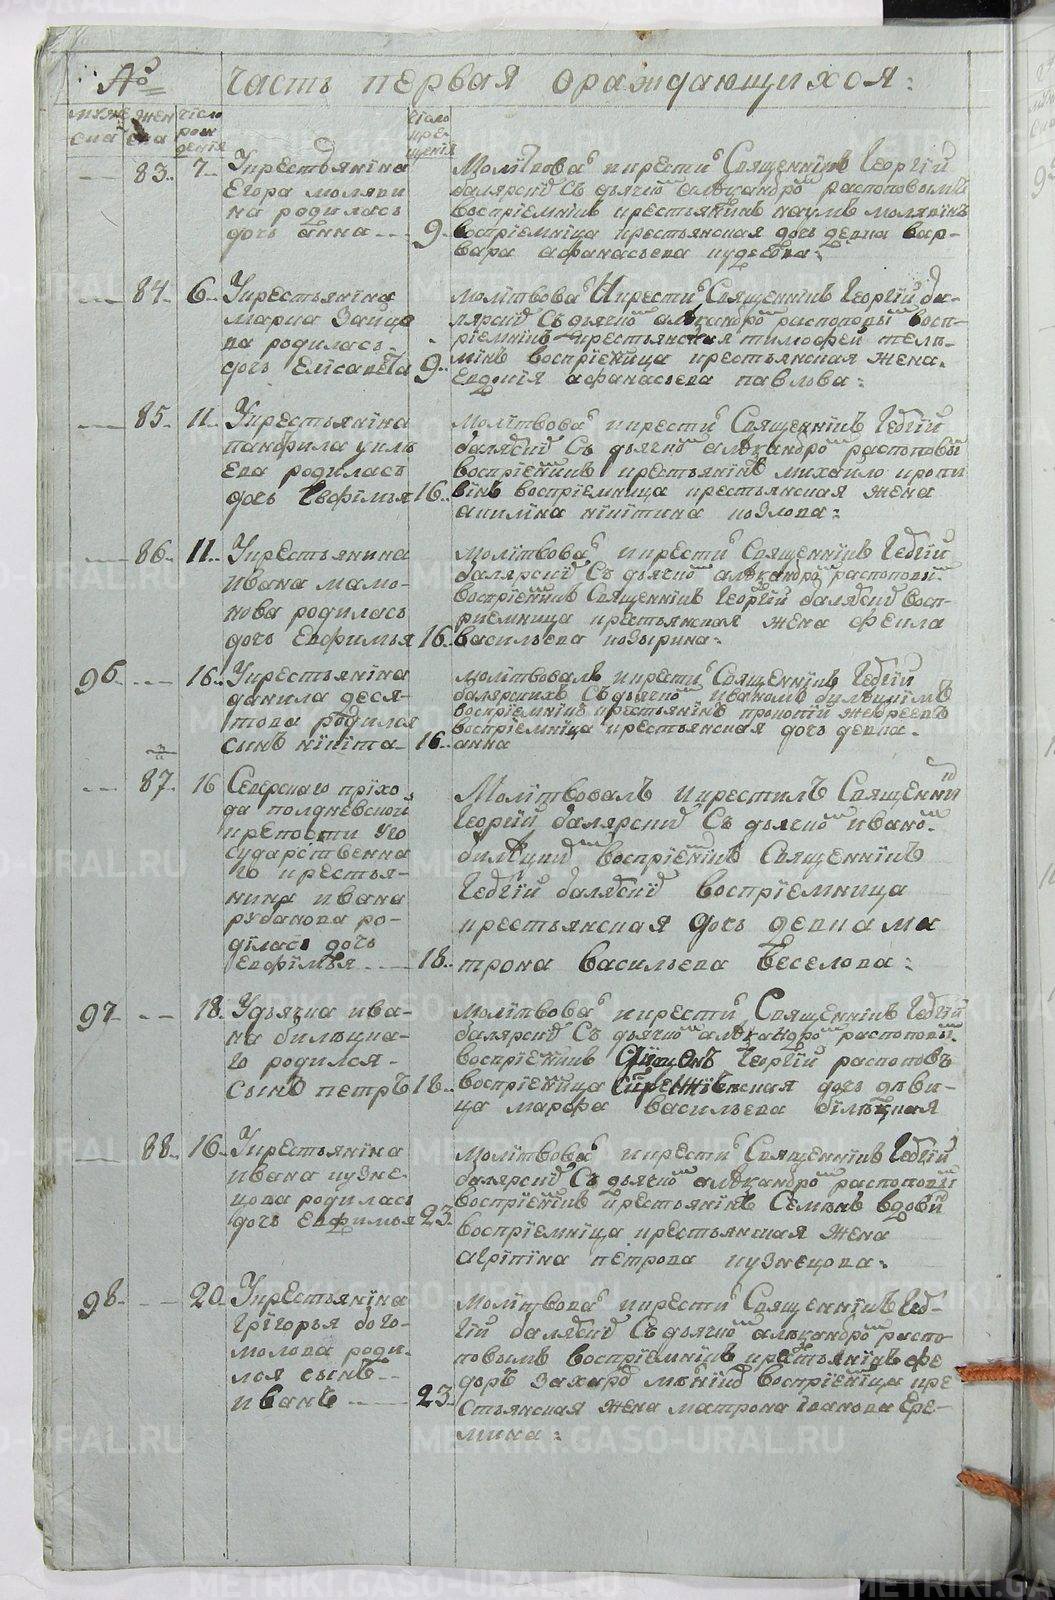 № Часть первая о раждающихся:
муже
ска
жен
ска
число
рож
дения
число
кре-
щения
83. 7. У крестьянина
Егора моляви
на родилась
дочь анна 9.
Молитвова и крести Священникъ Георгий
балярский Съ дьячко алѣѯандро распоповымъ
восприемникъ крестьянинъ наумъ молявинъ
восприемница крестьянская дочь девка вар-
вара афанасьева
84. 6. У крестьянина
марка Зайце
ва родилась
дочь Елисавета 9.
молитвова И крести Священникъ Георгий ба-
лярский Съ дьячко алѣѯандро распоповы восп-
риемникъ крестьянская тимофей
восприемница крестьянская жена
Евдокия афанасьева павлова:
85. 11. У крестьянина
панфила
ева родилась
дочь Евфимья 16.
Молитвова и крести Священникъ Георгий
балярский Съ дьячко алѣѯандро распоповы
восприемникъ крестьянинъ михайло кропи
винъ восприемница крестьянская жена
акилина никитина козлова:
86. 11. У крестьянина
ивана мамо-
нова родилась
дочь Евфимья 16.
молитвова и крести Священникъ Георгий
балярский Съ дьячко алѣѯандро распоповы
восприемникъ Священникъ Георгий балярский восп-
риемница крестьянская жена фекла
васильева козырина:
96. 16. У крестьянина
данила деся-
това родился
сынъ никита 16.
молитвовалъ и крести Священникъ Георгий
балярскихъ Съ дьячко иваномъ
восприемникъ крестьянинъ прокопий
восприемница крестьянская дочь девка
анна
87. 16 Северскаго прихо
да полдневской
крепости У го
сударственна
го крестья-
нина ивана
рубанова ро-
дилась дочь
Евфимья 18.
Молитвовалъ и крестилъ Священни
Георгий балярский Съ дьячко ивано
билѣцки восприемникъ Священникъ
Георгий балярский восприемница
крестьянская дочь девка ма
трона васильева веселова:
97. 18. У дьячка ива-
на билѣцка-
го родился
сынъ петръ 18.
Молитвова и крести Священникъ Георгий
балярский Съ дьячко алѣѯандро распоповы
восприемникъ Георгий распоповъ
восприемница дочь дѣви-
ца марфа васильева билѣцкая
88. 16. У крестьянина
ивана кузне-
цова родилась
дочь Евфимья 23.
молитвова и крести Священникъ Георгий
балярский Съ дьячко алѣѯандро распоповы
восприемникъ крестьянинъ Семѣнъ вдови
восприемница крестьянская жена
агрипина петрова кузнецова:
98. 20. У крестьянина
григорья бого-
молова роди-
лся сынъ
иванъ 23.
молитвова и крести Священникъ Геор-
гий балярский Съ дьячко алѣѯандро распо
повымъ восприемникъ крестьянинъ фе
доръ захаро восприемница кре
стьянская жена матрона иванова Ере-
мина: